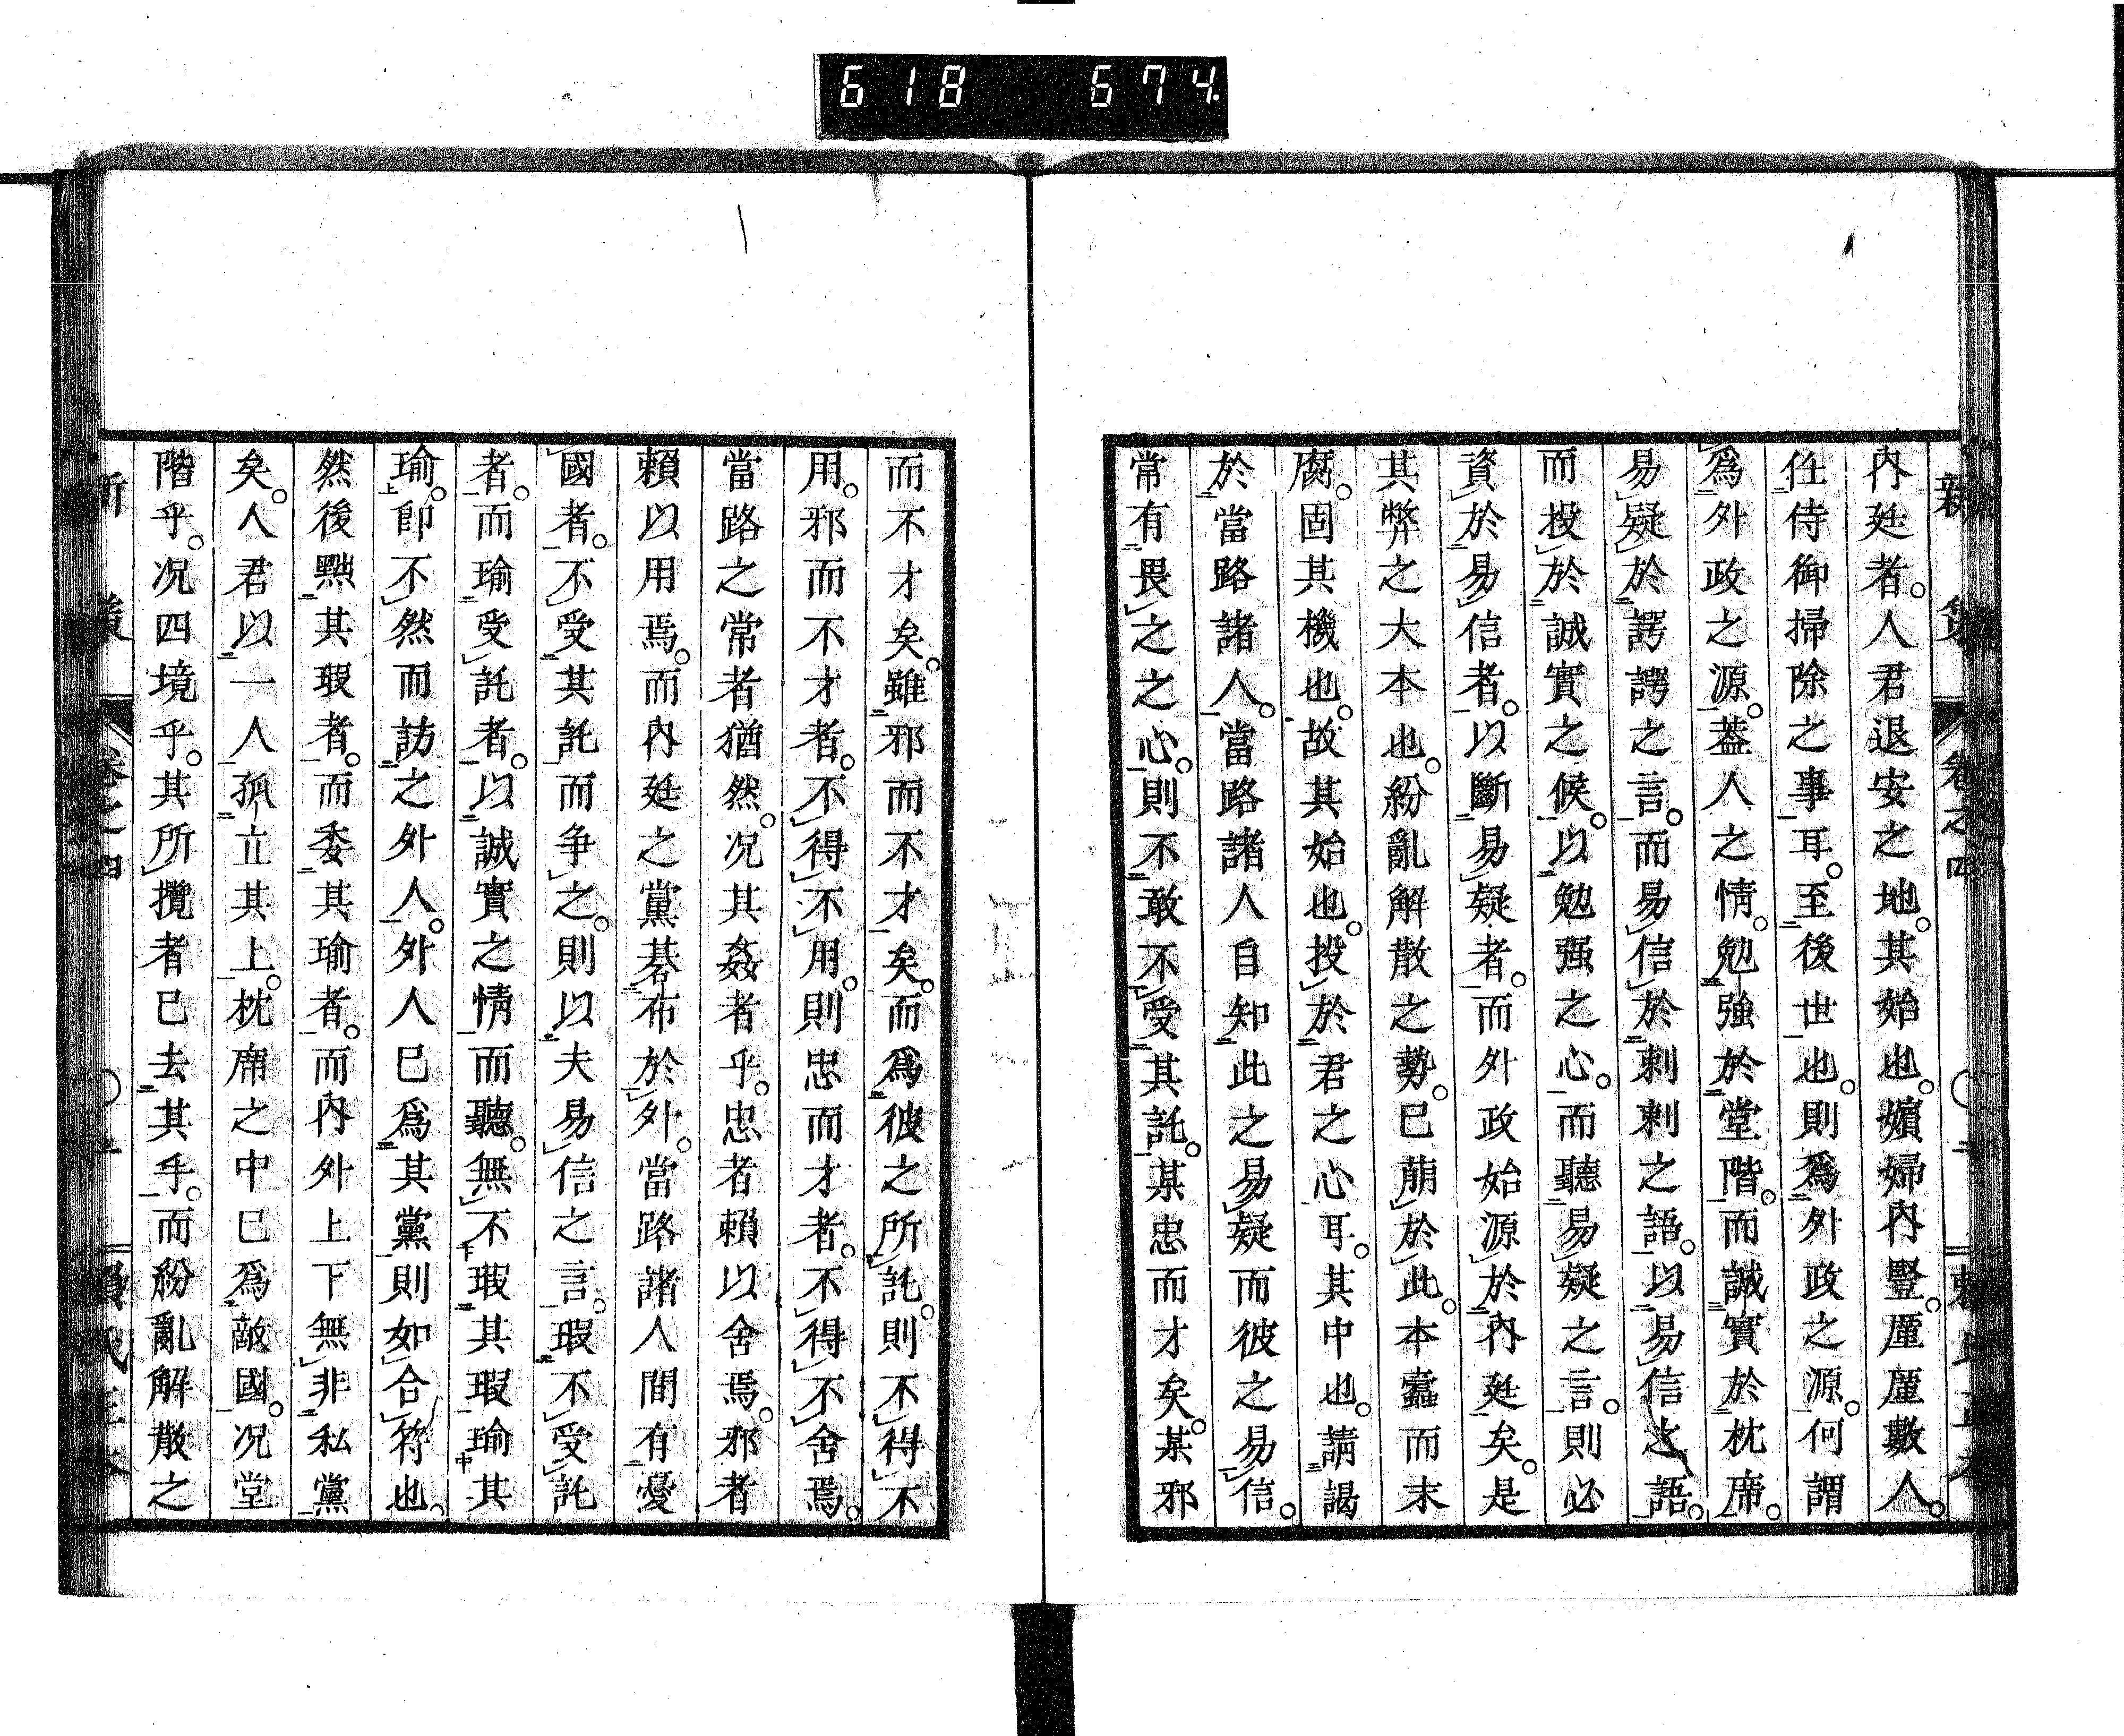 618 674
新策 卷之四
內廷者。人君退安之地。其始也。嬪婦內豎。厪厪數人。
任侍御掃除之事耳。至後世也。則爲外政之源。何謂
爲外政之源。葢人之情。勉強於堂階。而誠實於枕席。
易疑於諤諤之言。而易信於刺刺之語。以易信之語。
而投於誠實之候。以勉强之心。而聽易疑之言。則必
資於易信者。以斷易疑者。而外政始源於內廷矣。是
其弊之大本也。紛亂解散之勢。已萠於此。本蠧而末
腐。固其機也。故其始也。投於君之心耳。其中也。請謁
於當路諸人。當路諸人自知此之易疑而彼之易信。
常有畏之之心。則不敢不受其託。某忠而才矣。某邪
而不才矣。雖邪而不才矣。而爲彼之所託。則不得不
用。邪而不才者。不得不用。則忠而才者。不得不舍焉。
當路之常者猶然。况其姦者乎。忠者賴以舍焉。邪者
賴以用焉。而內廷之黨碁布於外。當路諸人間有憂
國者。不受其託而争之。則以夫易信之言。瑕不受託
者。而瑜受託者。以誠實之情而聽。無不瑕其瑕瑜其
瑜。卽不然而訪之外人。外人已爲其黨則如合符也。
然後黜其瑕者。而委其瑜者。而內外上下無非私黨
矣。人君以一人孤立其上。枕席之中已爲敵國。况堂
階乎。况四境乎。其所攬者已去其手。而紛亂解散之
卷之四